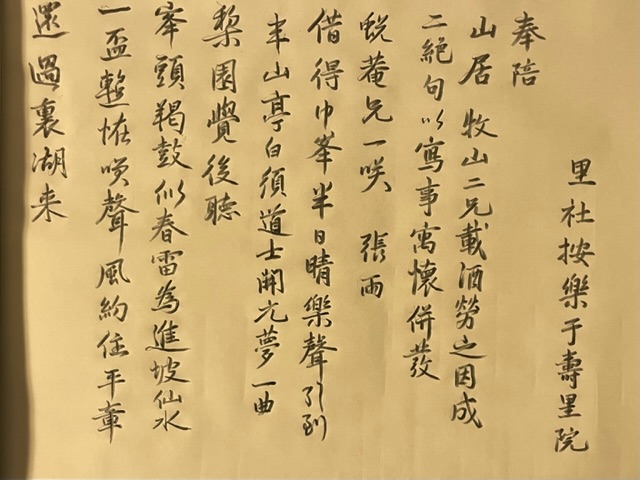 里社按樂于壽里院
奉陪
山居牧山二兄載酒勞之因成
二絕句以寫事寓懷併發
蛻菴兄一咲 張雨
借得巾峯半日晴樂聲引到
半山亭白須道士開元夢一曲
梨園覺後聽
峯頭羯鼓似春雷為進坡仙水
一盃恠咲聲風約住平章
還過裏湖来